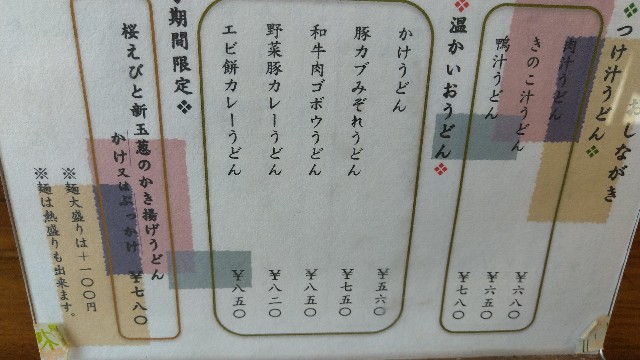 しながき
❖つけ汁うどん❖
肉汁うどん ¥六八〇
きのこ汁うどん ¥六五〇
鴨汁うどん ¥七八〇
❖温かいおうどん❖
かけうどん ¥五六〇
豚カブみぞれうどん ¥七五〇
和牛肉ゴボウうどん ¥八五〇
野菜豚カレーうどん ¥八二〇
エビ餅カレーうどん ¥八五〇
期間限定❖
桜えびと新玉葱のかき揚げうどん
かけ又はぶっかけ ¥七八〇
※麺大盛りは+一〇〇円
※麺は熱盛りも出来ます。